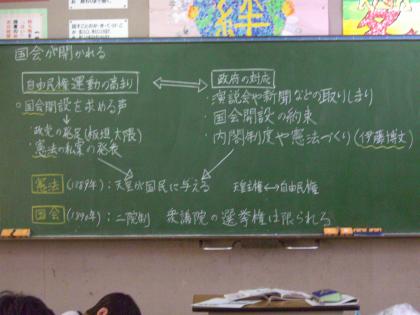 絆
国会が開かれる
自由民権運動の高まり ⟷ 政府の対応
○国会開設を求める声
・政党の発足(板垣大隈)
・憲法の私案の発表
・演説会や新聞などの取りしまり
・国会開設の約束
・内閣制度や憲法づくり(伊藤博文)
憲法(1889年):天皇が国民に与える 天皇主権↔自由民権
国会(1890年):二院制 衆議院の選挙権は限られる